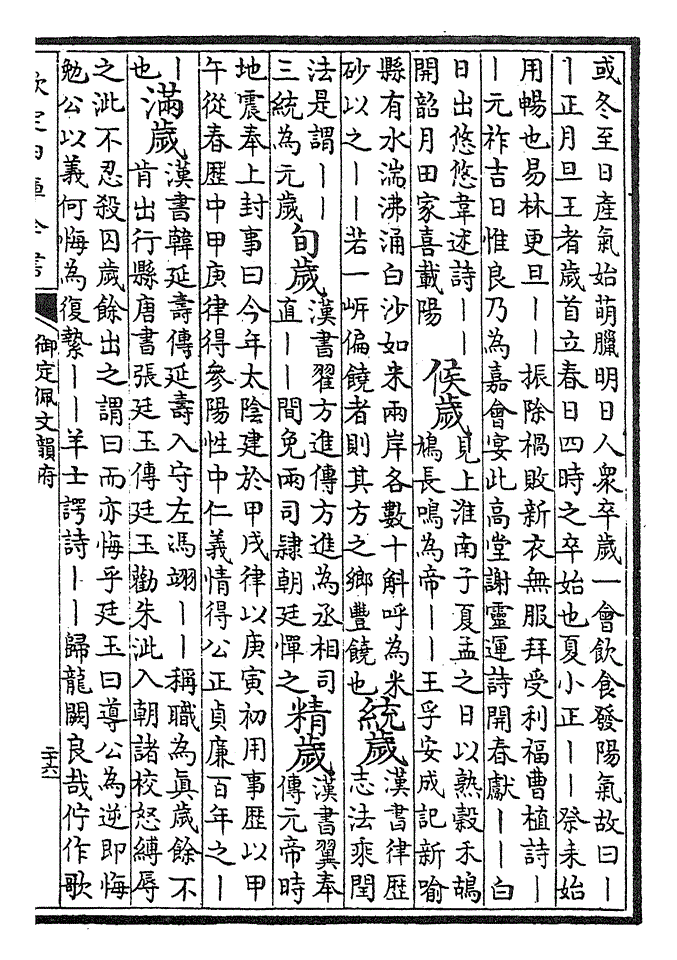 或冬至日產氣始萌臘明日人衆卒歲一會飲食發陽氣故曰丨
丨正月旦王者歲首立春日四時之卒始也夏小正丨丨癸未始
用暢也易林更旦丨丨振除禍敗新衣無服拜受利福曹植詩丨
丨元祚吉日惟良乃為嘉會宴此高堂謝靈運詩開春獻丨丨白
日出悠悠韋述詩丨丨
開韶月田家喜載陽
候歲
見上淮南子夏孟之日以熟穀禾鴣
鳩長鳴為帝丨丨王孚安成記新喻
縣有水湍沸涌白沙如米兩岸各數十斛呼為米
砂以之丨丨若一㟁偏饒者則其方之鄉豐饒也
統歲
漢書律歷
志法乘閏
法是謂丨丨
三統為元歲
旬歲
漢書翟方進傳方進為丞相司
直丨丨間免兩司隸朝廷憚之
精歲
漢書翼奉
傳元帝時
地震奉上封事曰今年太陰建於甲戌律以庚寅初用事歷以甲
午從春歷中甲庚律得參陽性中仁義情得公正貞廉百年之丨
丨
也
滿歲
漢書韓延壽傳延壽入守左馮翊丨丨稱職為眞歲餘不
肯出行縣唐書張廷玉傳廷玉勸朱泚入朝諸校怒縛辱
之泚不忍殺囚歲餘出之謂曰而亦悔乎廷玉曰導公為逆即悔
勉公以義何悔為復縶丨丨羊士諤詩丨丨歸龍闕良哉佇作歌
欽定四庫全書
御定佩文韻府
二十六